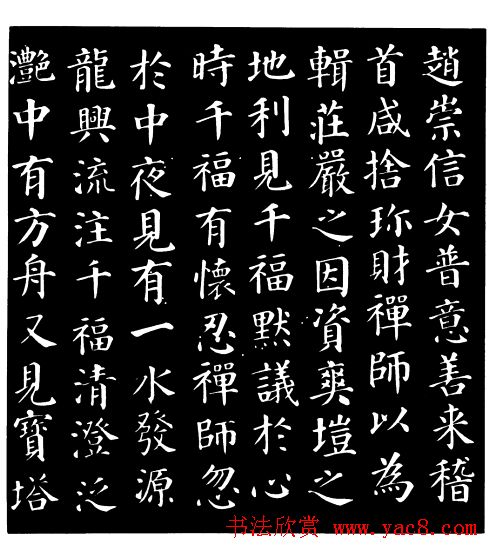 趙崇信女普意善来稽
首咸捨珎財禪師以為
輯莊嚴之因資爽塏之
地利見千福默議於心
時千福有懷忍禪師忽
於中夜見有一水發源
龍興流注千福清澄泛
灔中有方舟又見寶塔
书法欣赏 www.yac8.com